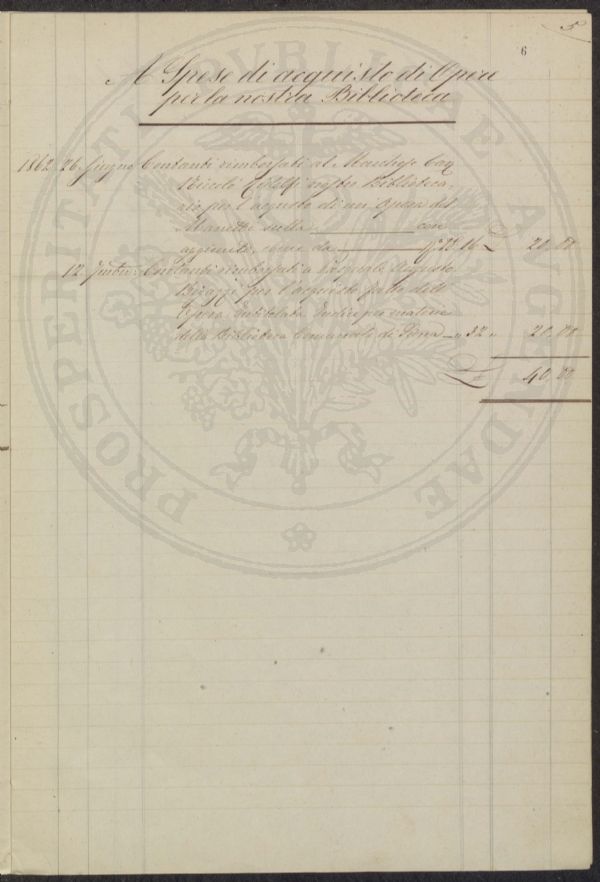 5
6
A Spese di acquisto di Opere
per la nostra Biblioteca
1862 26 Giugno Contanti rimborsati al Marchese Cav
Niccolò Ridolfi nostro Biblioteca,
rio per l'acquisto di un Opera del
Manetti sulla con
aggiunte, come da 16 £ 20.00
12 Contanti rimborsati a Pasquale Augusto
Bicazzi per l'acquisto fatto dell
Opera Intitolata Indice per materie
della Biblioteca Comunale di Siena " 32 " 20.00
£ 40.00
PROSPERITATI PUBLICAE AUGENDAE